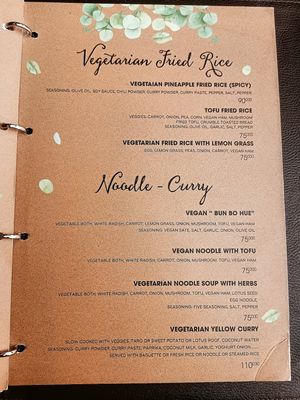 Vegetarian Fried Rice
VEGETAIAN PINEAPPLE FRIED RICE (SPICY)
SEASONING: OLIVE OIL, SOY SAUCE, CHILI POWDER, CURRY POWDER, CURRY PASTE, PEPPER, SALT, PEPPER
90000
TOFU FRIED RICE
VEGGIES: CARROT, ONION, PEA, CORN, VEGAN HAM, MUSHROOM
FRIED TOFU, CRUMBLE TOASTED BREAD
SEASONING: OLIVE OIL, GARLIC, SALT, PEPPER
75000
VEGETARIAN FRIED RICE WITH LEMON GRASS
EGG, LEMON GRASS, PEAS, ONION, CARROT, VEGAN HAM
75000
Noodle - Curry
VEGAN " BUN BO HUE"
VEGETABLE BOTH, WHITE RADISH, CARROT, LEMON GRASS, ONION, MUSHROOM, TOFU, VEGAN HAM
SEASONING: VEGAN SATE, SALT, GARLIC, ONION, OLIVE OIL
75000
VEGAN NOODLE WITH TOFU
VEGETABLE BOTH, WHITE RADISH, CARROT, ONION, MUSHROOM, TOFU, VEGAN HAM
75000
VEGETARIAN NOODLE SOUP WITH HERBS
VEGETABLE BOTH, WHITE RADISH, CARROT, ONION, MUSHROOM, TOFU, VEGAN HAM, LOTUS SEED
EGG NOODLE
SEASONING: FIVE SEASONING, SALT, PEPPER
75000
VEGETARIAN YELLOW CURRY
SLOW COOKED WITH VEGGIES, TARO OR SWEET POTATO OR LOTUS ROOT, COCONUT WATER
SEASONING: CURRY POWDER, CURRY PASTE, PAPRIKA, COCONUT MILK, GARLIC, YOGHURT ONION
SERVED WITH BAGUETTE OR FRESH RICE OR NOODLE OR STEAMED RICE
110000